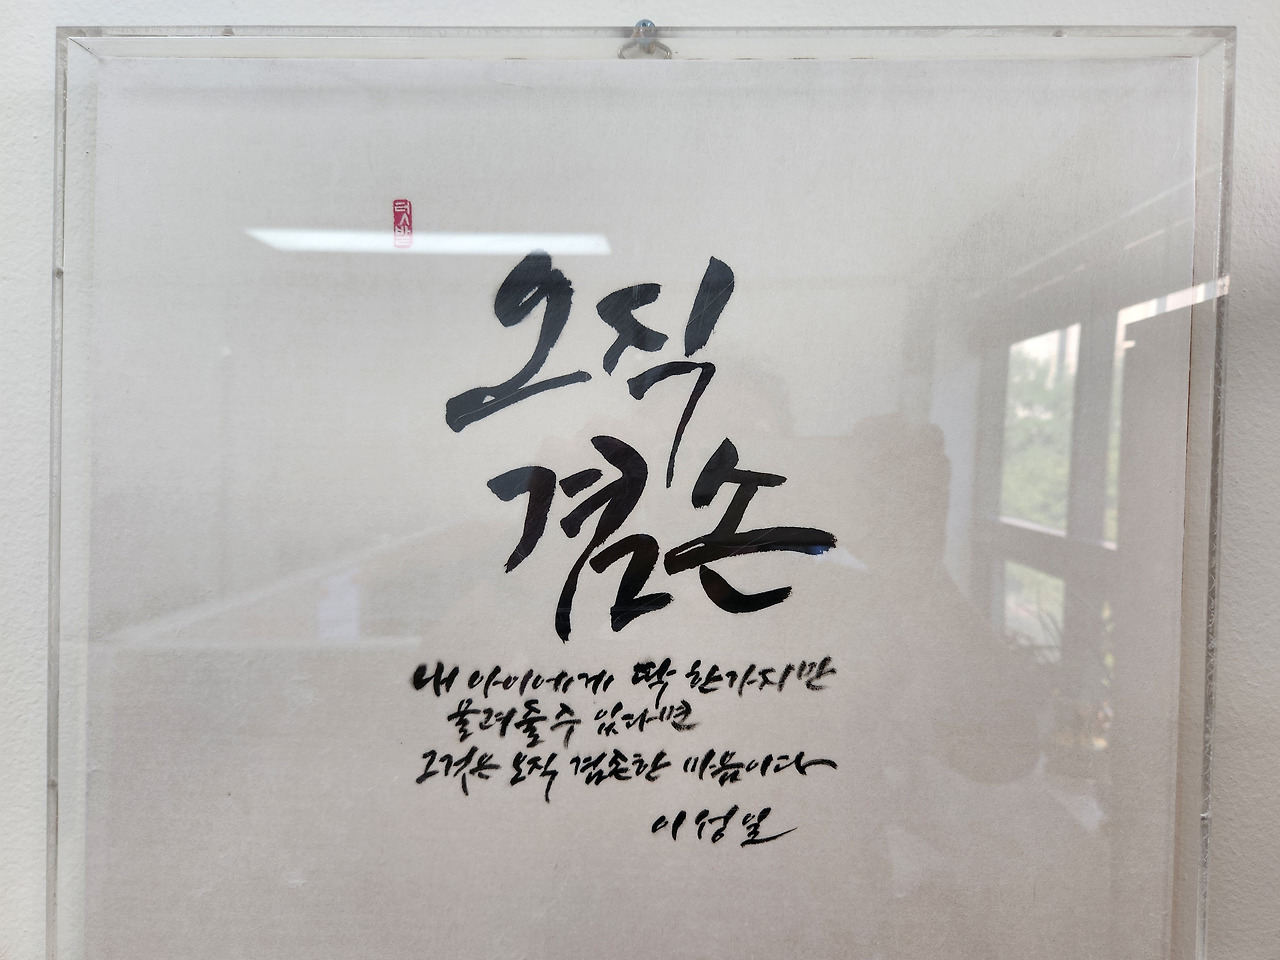 오직
겸손
내 아이에게 딱 한가지만
물려줄 수 있다면
그것은 오직 겸손한 마음이다
이성일